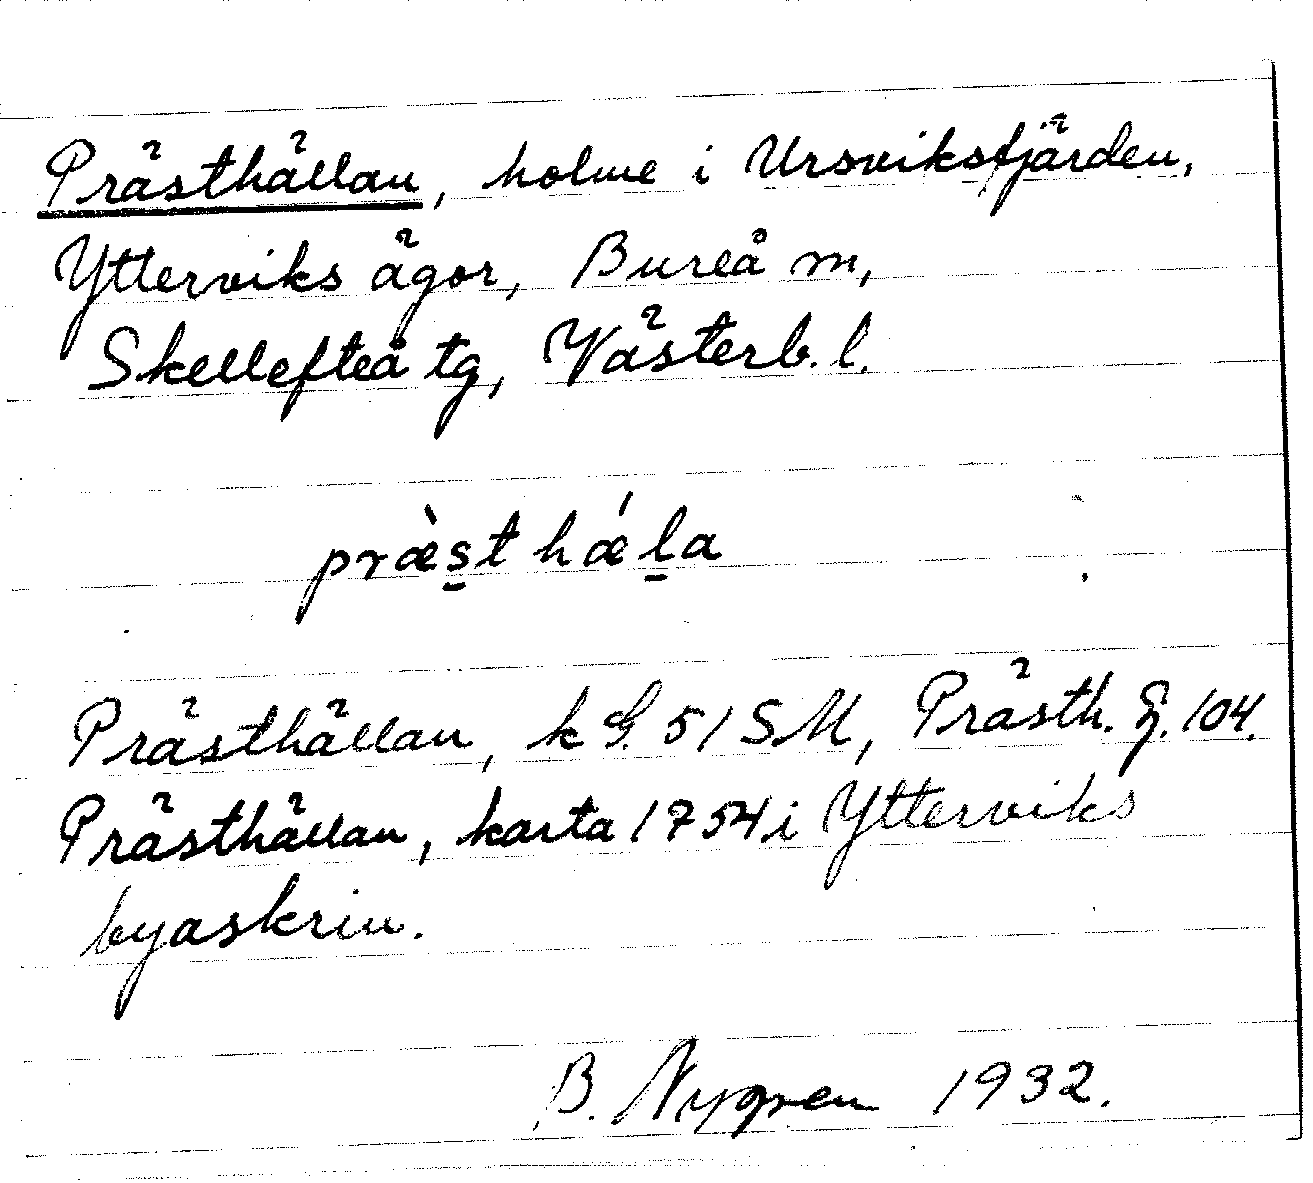 Prästhällan, holme i Ursviksfjärden,
Ytterviks ägor, Bureå m,
Skellefteå tg, Västerb. l.
præ̀s̲t hǽl̲a
Prästhällan, k G. 51 SM, Prästh. G. 104.
Prästhällan, karta 1754 i Ytterviks
byaskrin.
B. Nygren 1932.